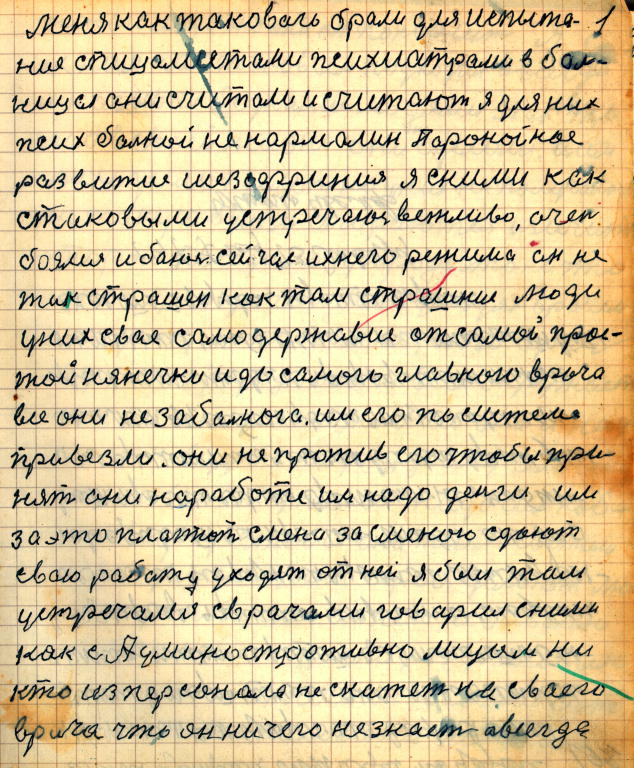 меня как таковогъ брали для испыта- 1
ние спицолистами психиатрами в бол-
ницы они считали и считают я для них
псих болной не нормалин Паронойное
развитие шезофриния я сними как
стаковыми устречаюс вежливо, очен
боялся и боюс сейчас ихнего режима он не
так страшен как там страшные люди
у них свае самодержавие от самой прос-
той нянечки и до самого главного врача
все они не за болнога. им его по системе
привезли. они не против его чтобы при-
нят они на работе им надо денги им
за это платют смена за сменою сдают
сваю работу уходят от ней я был там
устречался с врачами говарил сними
как с Админостротивно лицом ни
кто из персонала не скажет на сваего
врача что он ничего не знает всегда